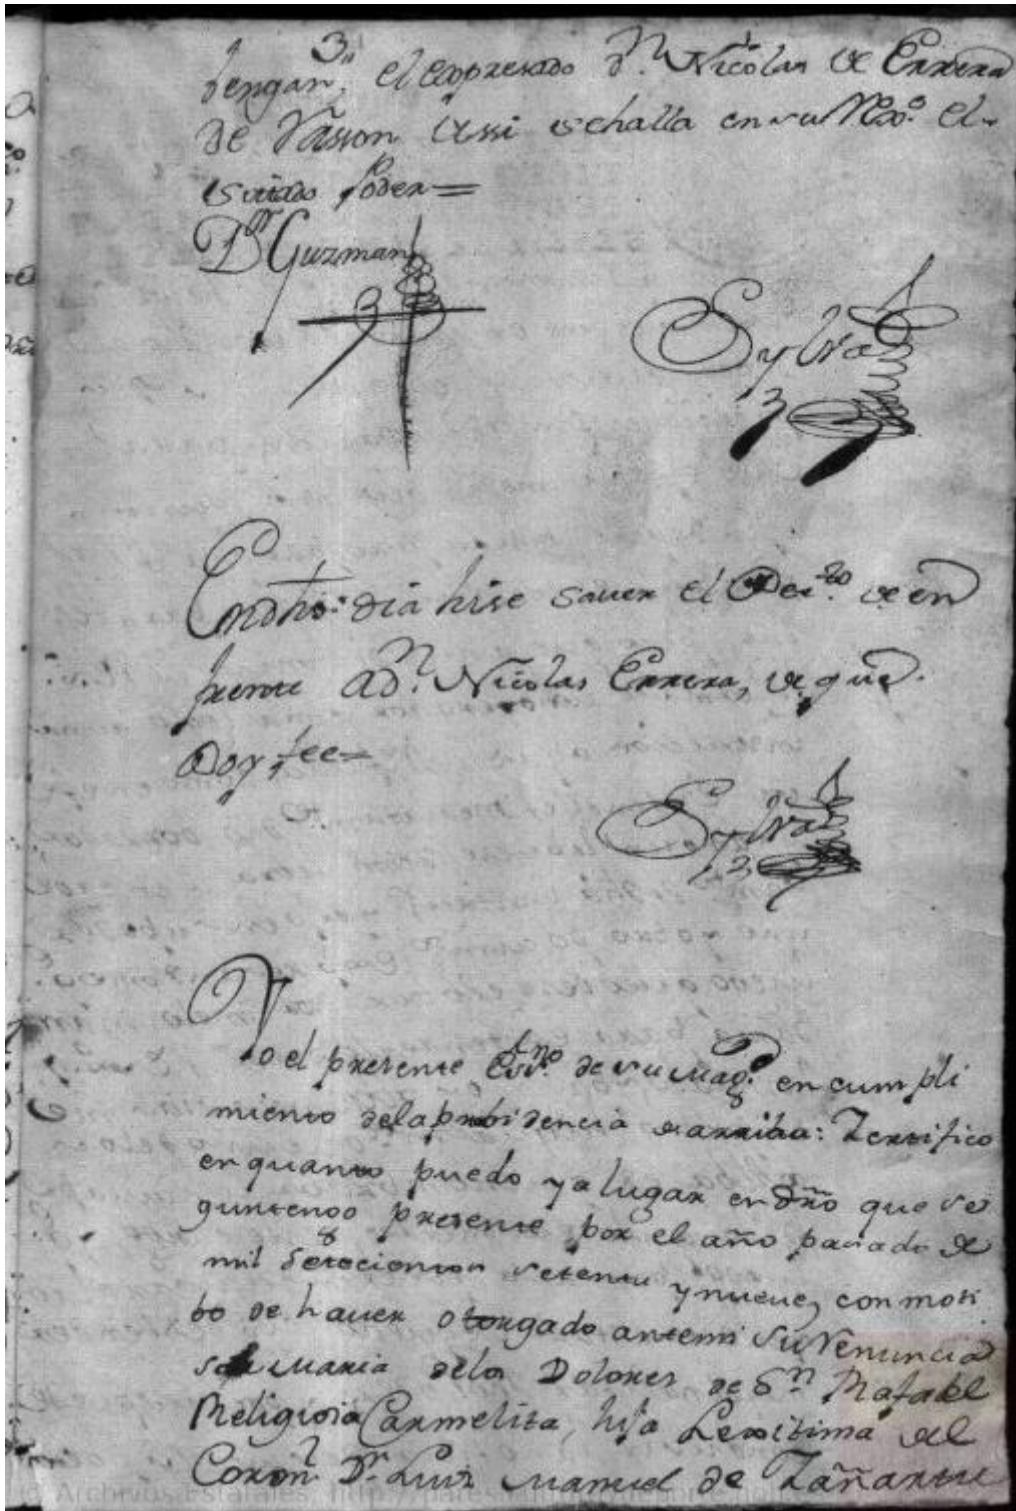 tengan; el expresado Dn. Nicolas de Errera
de Vasson assi se halla en su Rexo. el
es citado Poder=
Dr Guzman
Sylva
En dho. dia hise saver el Decto. de en
frente a Dn. Nicolas Errera, de que
Doy fee=
Sylva
Yo el presente Essno. de su Magd. en cumpli
miento de la probidencia de arriba: Zertifico
en quanto puedo y a lugar en dro que se
gun tengo presente por el año pasado de
mil setocientos setenta y nueve, con moti
bo de haver otorgado ante mi su Renuncia
sor Maria de los Dolores de Sn. Rafael
Religiosa Carmelita, hija Lexitima del
Coronl. Dn. Luiz Manuel de Zañartu